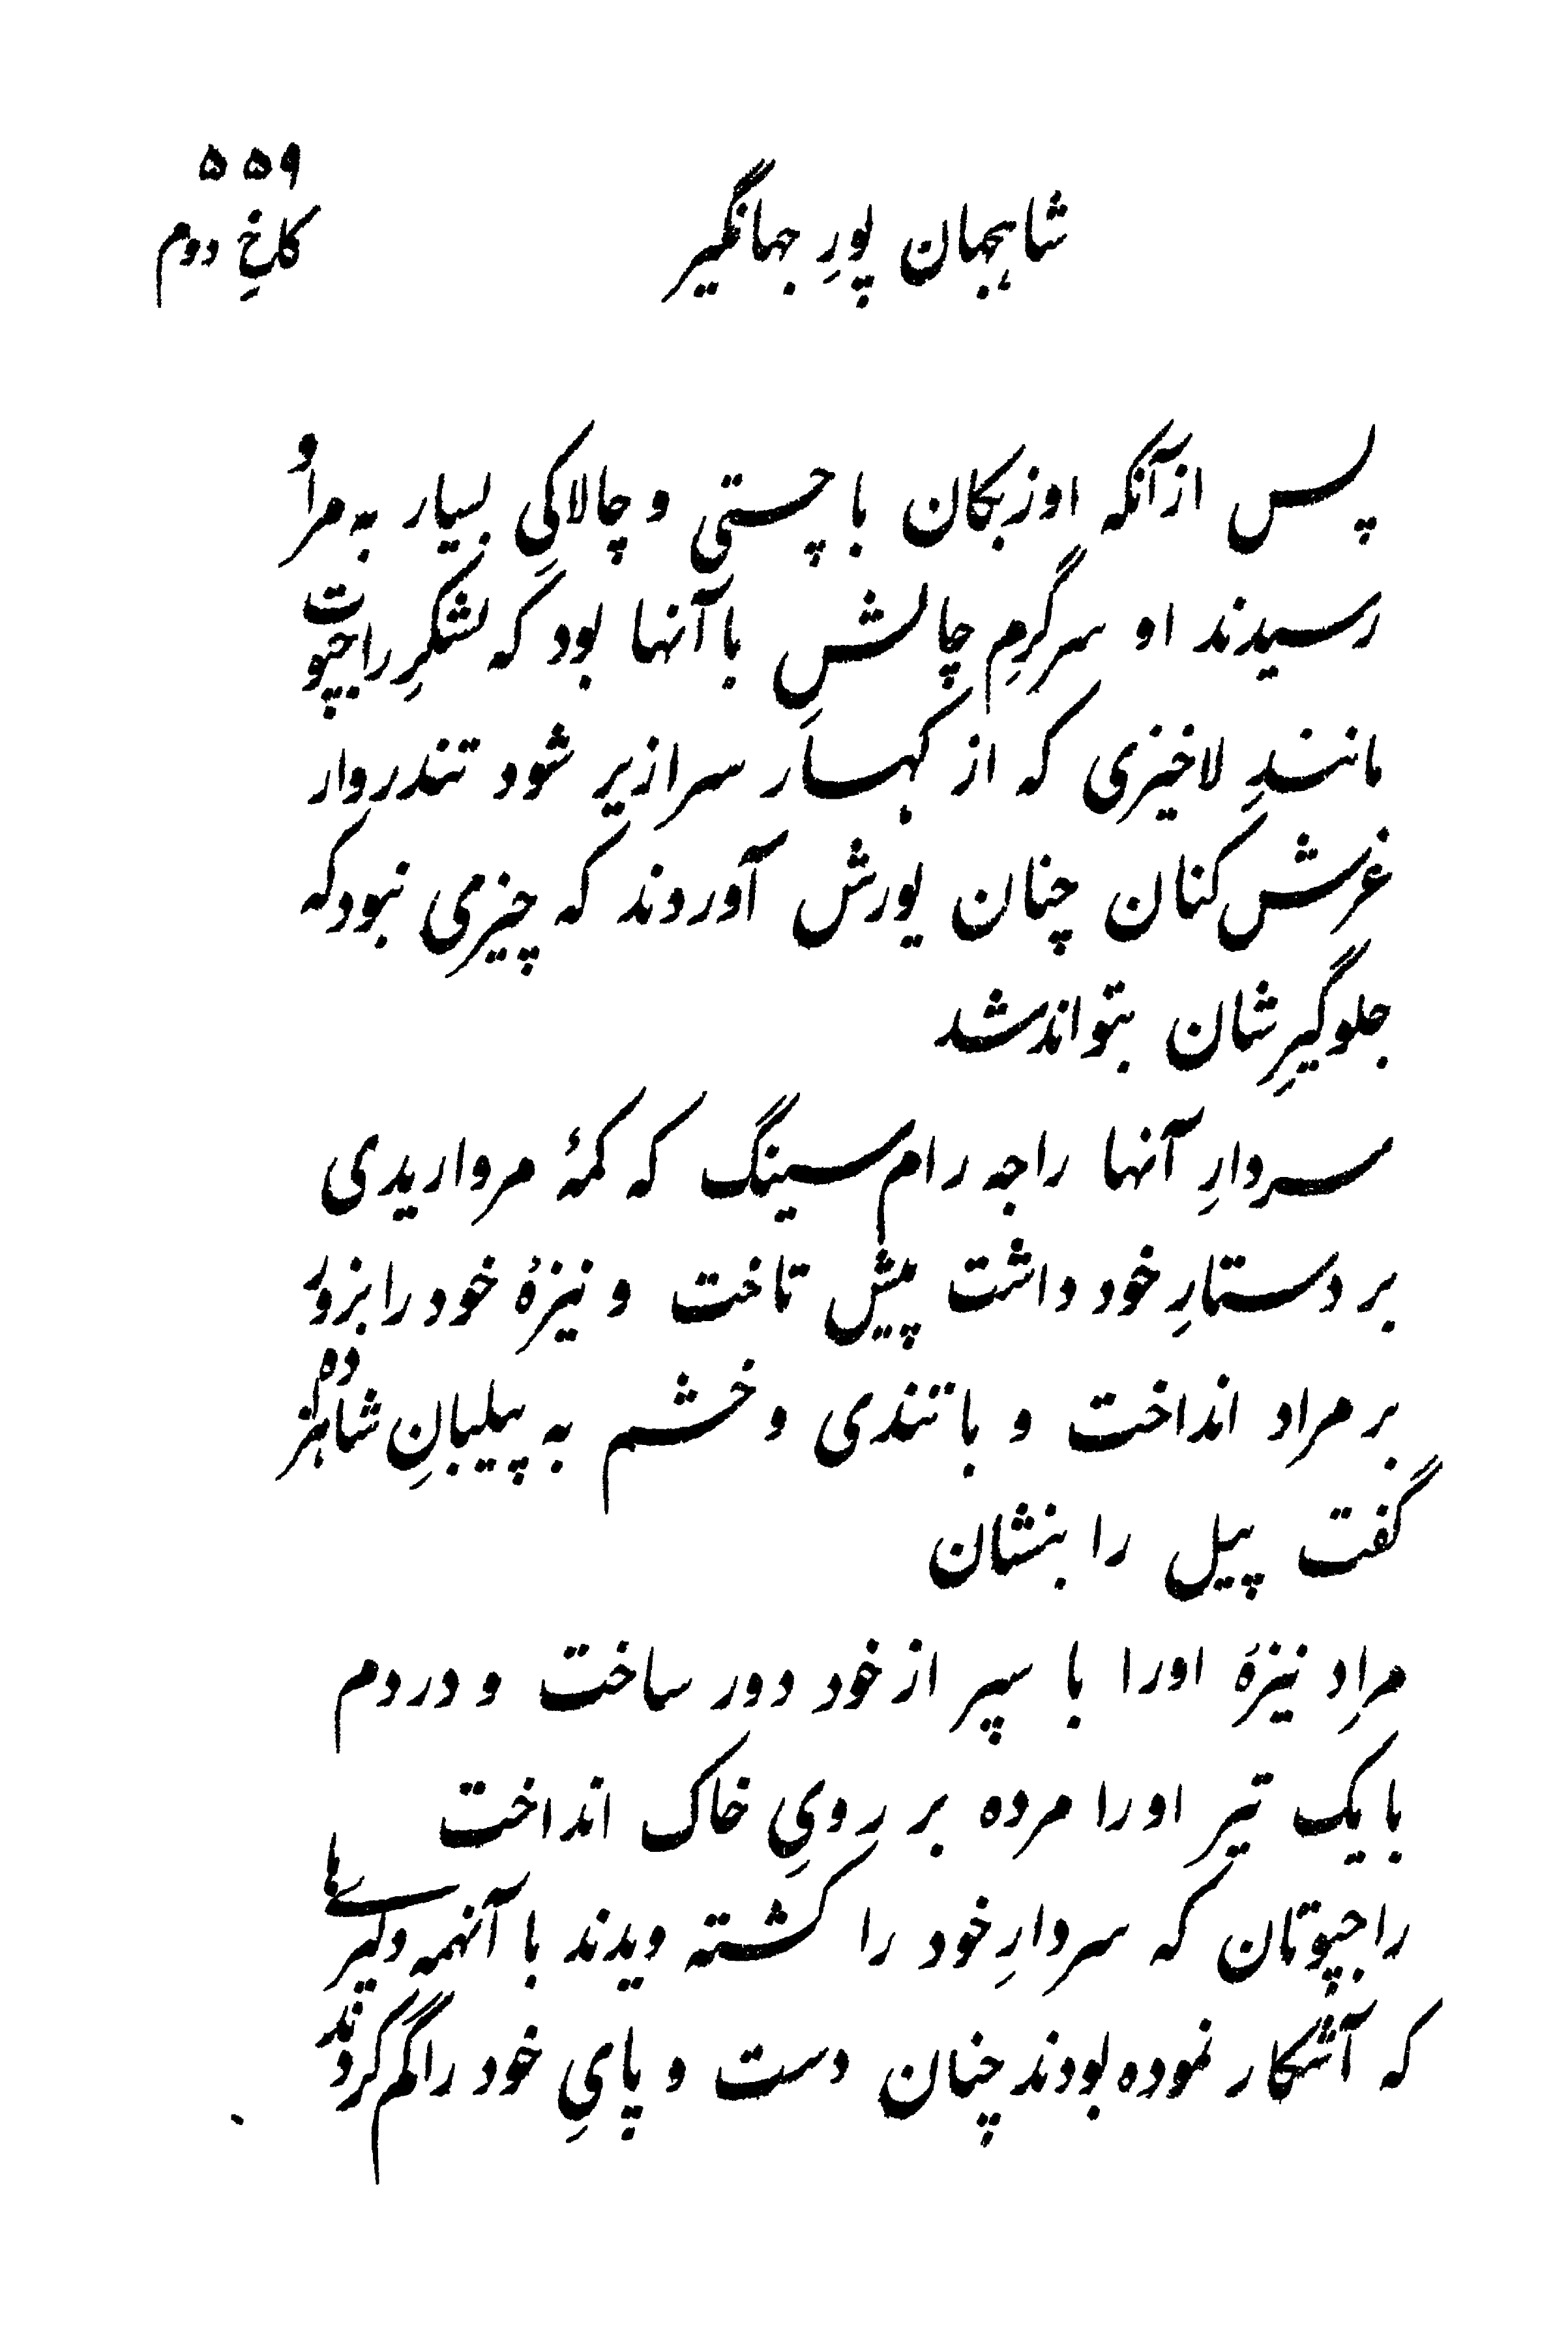 ۵۵۹
شاهجهان پورِ جهانگیر
کاخِ دوم
پس از آنکه اوزبکان با چستی و چالاکیِ بسیار به مراد
رسیدند او سرگرمِ چالشِ با آنها بود که لشکرِ راجپوت
مانندِ لاخیزی که از کهسار سرازیر شود تندر وار
غرش کنان چنان یورش آوردند که چیزی نبود که
جلوگیرِ شان بتواند شد
سردارِ آنها راجه رام سینگ که کمهٔ مرواریدی
بر دستارِ خود داشت پیش تاخت و نیزهٔ خود را بزور
بر مراد انداخت و با تندی و خشم به پیلبانِ شاهزاده
گفت پیل را بنشان
مراد نیزهٔ او را با سپر از خود دور ساخت و در دم
با یک تیر او را مرده بر رویِ خاک انداخت
راجپوتان که سردارِ خود را کشته دیدند با آنهمه دلیریها
که آشکار نموده بودند چنان دست و پایِ خود را گم کردند